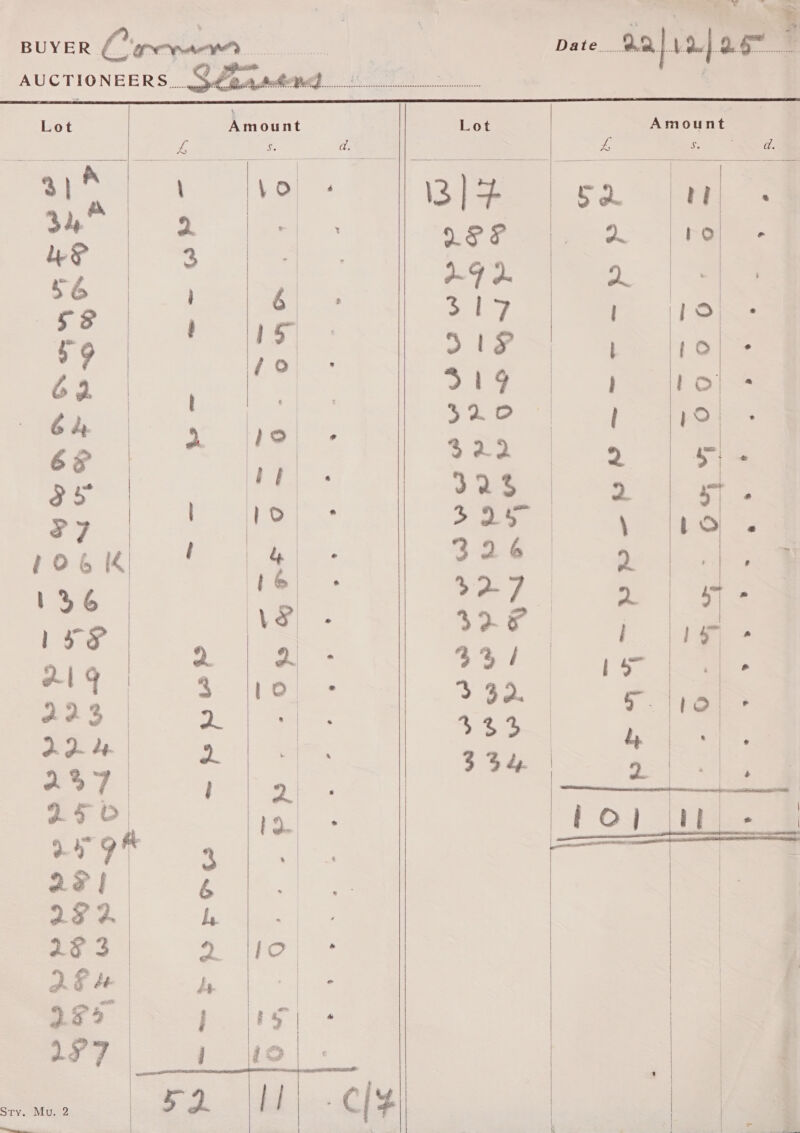 BUYER
AUCTIONEERS Stevens
Date 22/12/25
Lot Amount
£ s. d.
31A 1 10 -
34A 2 - -
48 3 - -
56 1 6 -
58 1 15 -
59 10 -
62 1 - -
64 2 10 -
68 11 -
85 1 10 -
87 1 4 -
106K 16 -
136 18 -
158 2 2 -
219 3 10 -
223 2 - -
224 2 - -
237 1 2 -
250 12 -
259A 3 - -
281 6 - -
282 4 - -
283 2 10 -
284 4 - -
285 1 15 -
287 1 10 -
52 11 - C/F
Lot Amount
£ s. d.
B/F 52 11 -
288 2 10 -
292 2 - -
317 1 10 -
318 1 10 -
319 1 10 -
320 1 10 -
322 2 5 -
323 2 5 -
325 1 10 -
326 2 - -
327 2 5 -
328 1 15 -
331 15 - -
332 5 10 -
333 4 - -
334 2 - -
101 11 -
STY. MU. 2